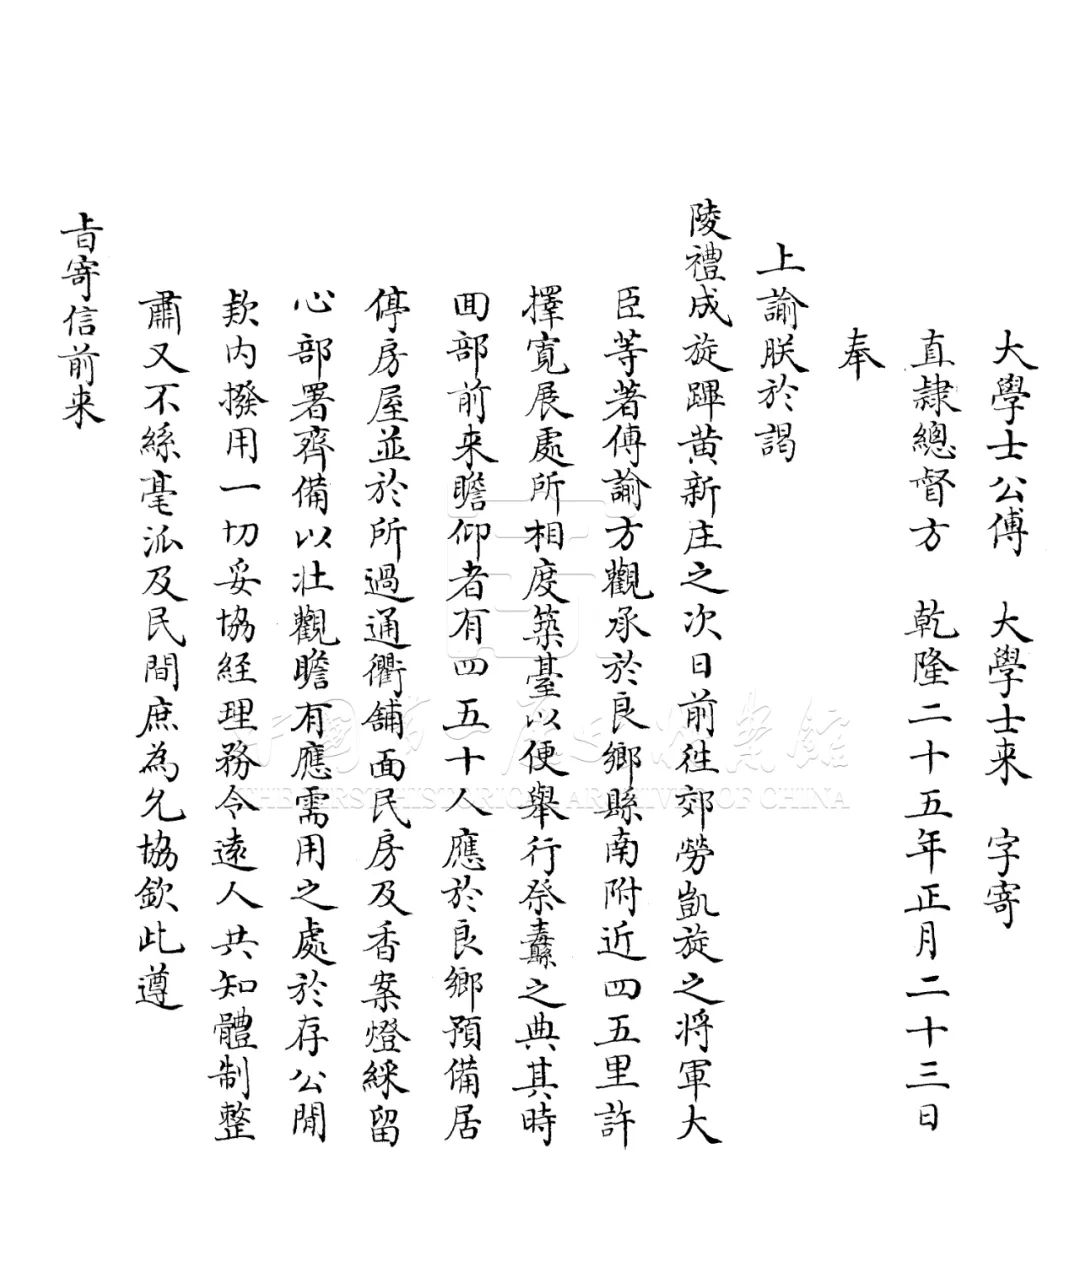 大學士公傅　大學士来　字寄
直隷總督方　乾隆二十五年正月二十三日
奉
上諭朕於謁
陵禮成旋蹕黄新庄之次日前徃郊勞凱旋之将軍大
臣等著傳諭方觀承於良鄉縣南附近四五里許
擇寛展處所相度築臺以便舉行祭纛之典其時
囬部前来瞻仰者有四五十人應於良鄉預備居
停房屋並於所過通衢舖面民房及香案燈綵留
心部署齊備以壯觀瞻有應需用之處於存公閒
欵内撥用一切妥協経理務令遠人共知體制整
肅又不絲毫派及民間庶為允協欽此遵
㫖寄信前来
中國第一歷史檔案館
THE FIRST HISTORICAL ARCHIVES OF CHINA